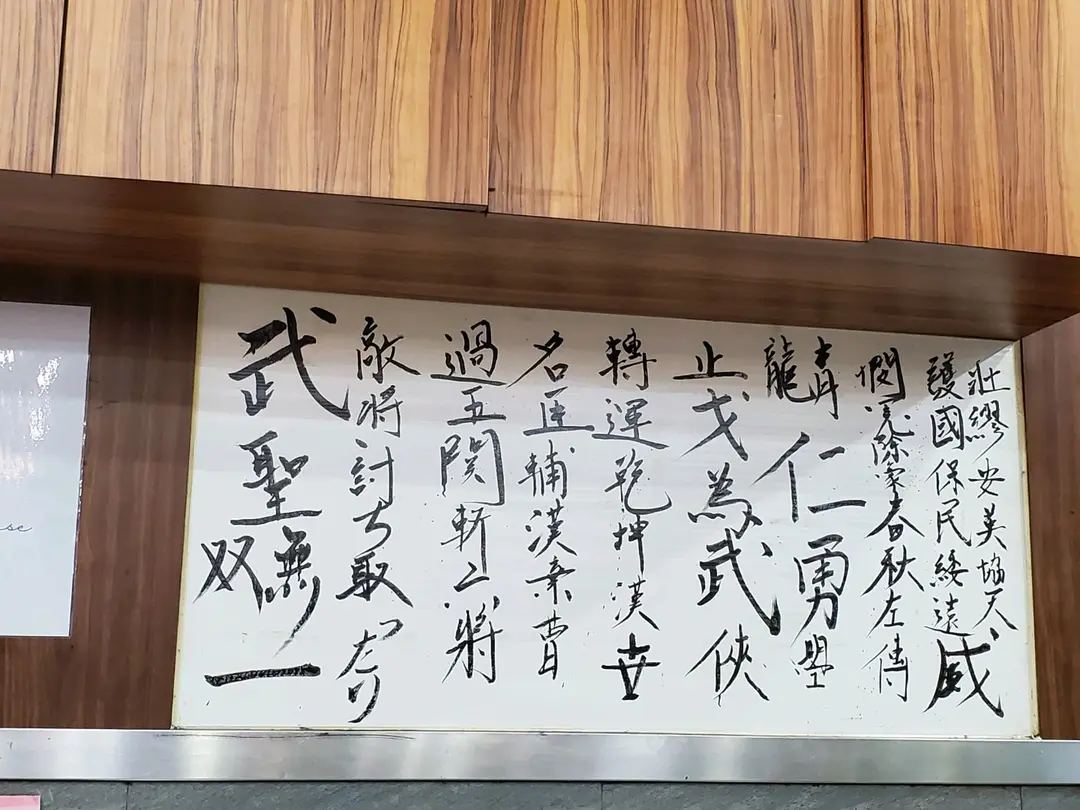 壯繆安英協天
護國保民綏遠威
除家春秋左傳
青龍仁勇學
止戈為武俠
轉運乾坤漢世
名匡輔漢棄曹
過五関斬六將
敵将討ち取ったり
武聖無双一